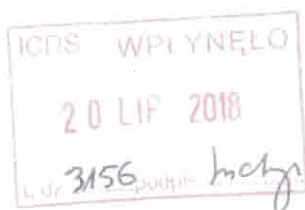 ICNS WPŁYNĘŁO
20 LIP 2018
L.dz 3156 podpis